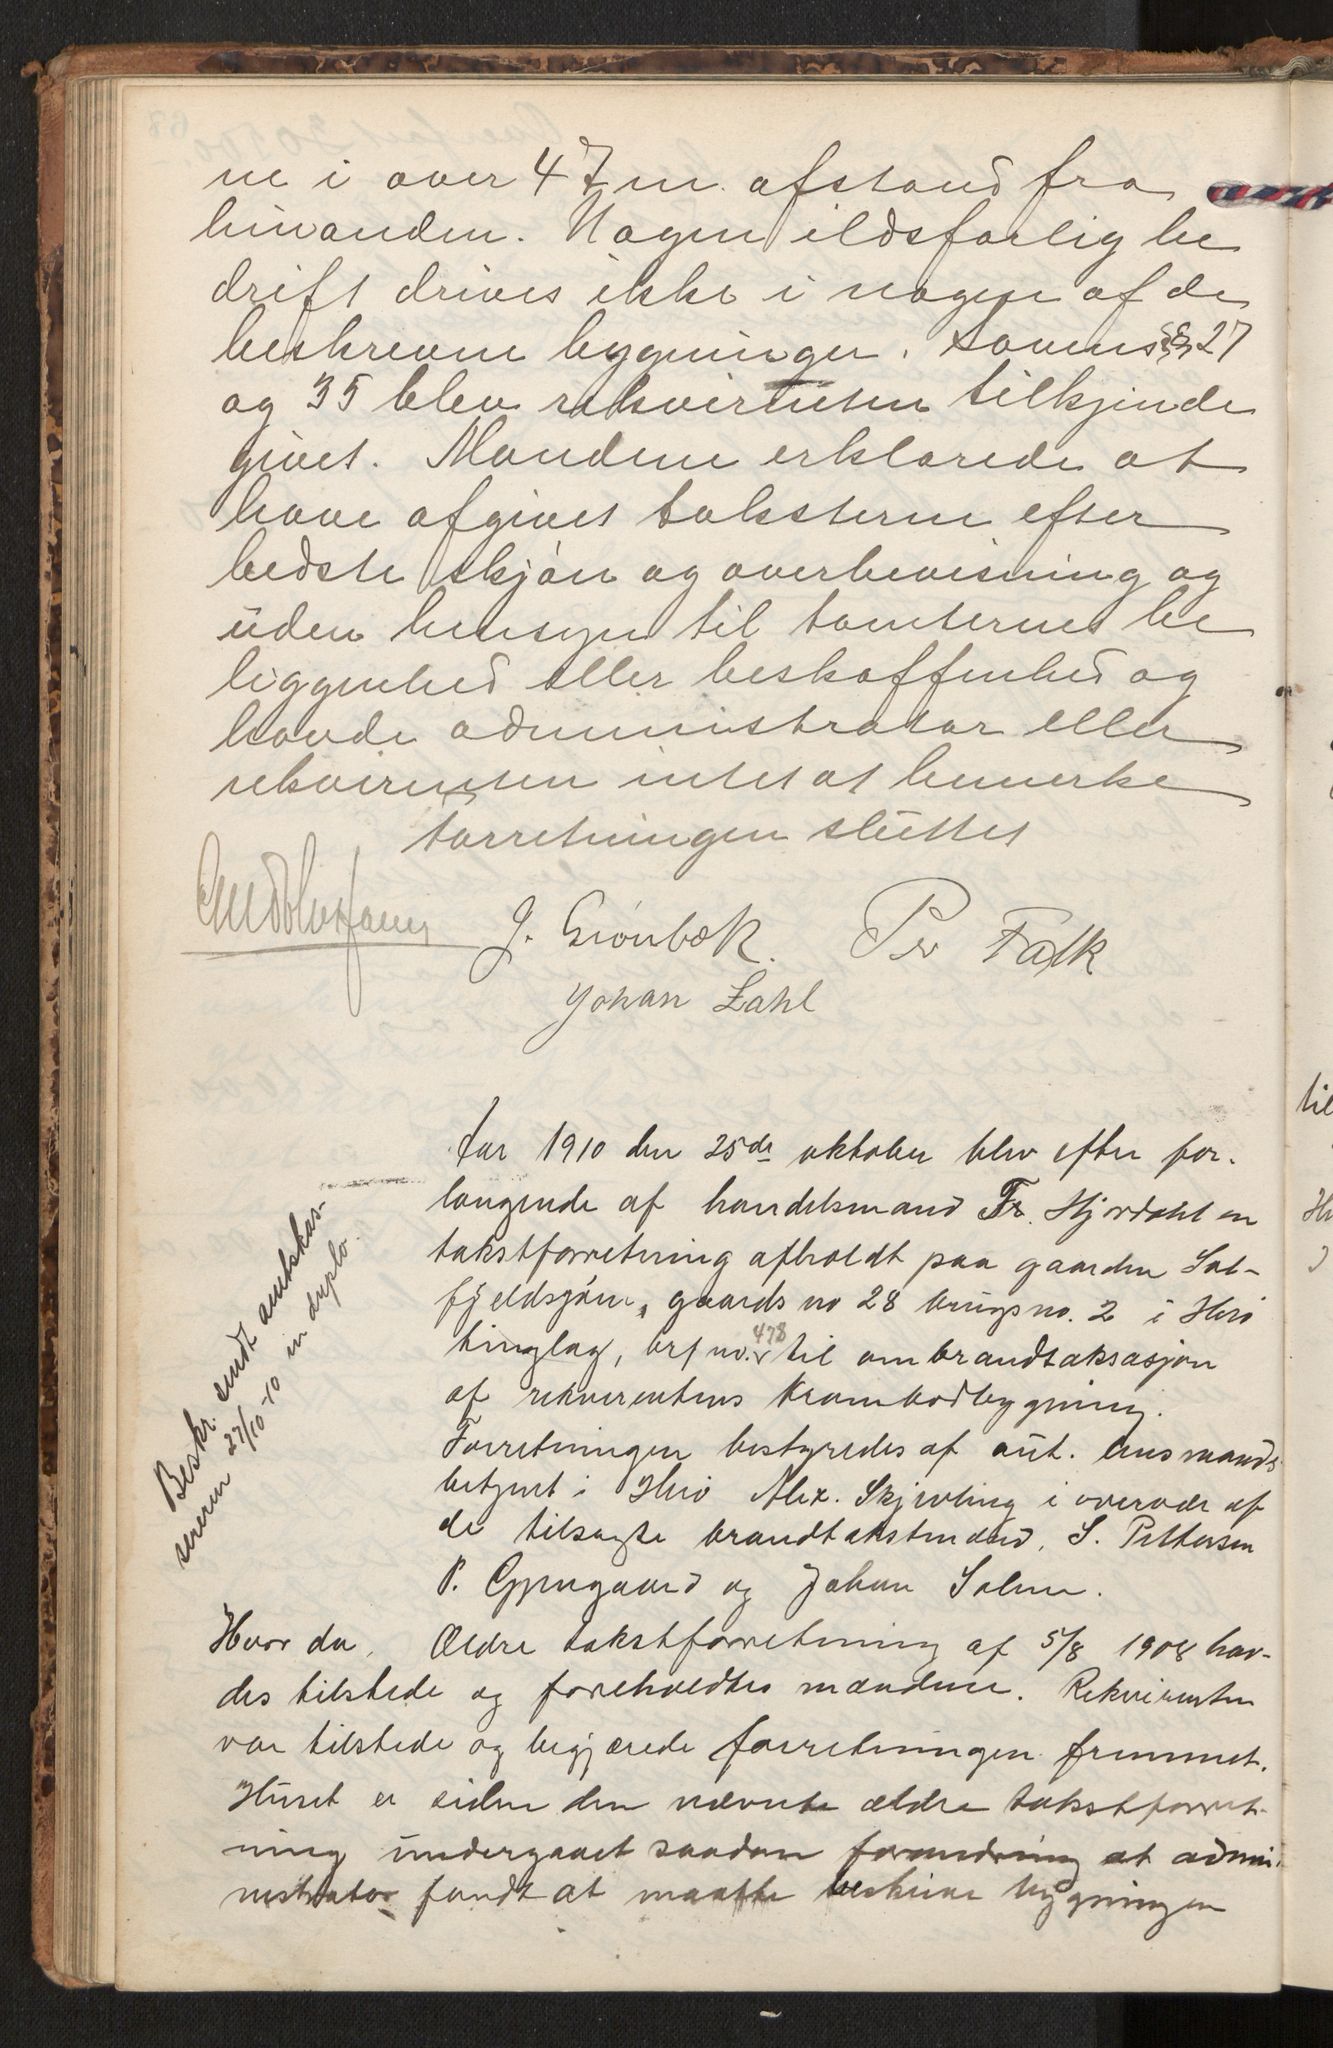 ne i over 47 m. afstand fra
hinanden. Nogen ildsfarlig be
drift drives ikke i nogen af de
beskrevne bygninger. Lovens §§ 27
og 35 blev rekvirenten tilkjende
givet. Mændene erklærede at
have afgivet taksterne efter
bedste skjøn og overbevisning og
uden hensyn til tomternes be
liggenhed eller beskaffenhed og
havde administrator eller
rekvirenten intet at bemerke
Forretningen sluttet
J. Grönbæk. Per Falk
Johan Zahl
Aar 1910 den 25de oktober blev efter for-
langende af handelsmand Fr. Hjordahl en
takstforretning afholdt paa gaarden Sat-
fjeldsjøen, gaards no 28 brugsno. 2 i Herö
tinglag, brf no. 478 til ombrandtaksasjon
af rekvirentens krambodbygning.
Forretningen bestyredes af aut. lensmands
betjent i Herö Alex. Skjevling i overvær af
de tilsagte brandtakstmænd, S. Pettersen
P. Gjengaard og Johan Solem.
Beskr. sendt amtskas-
sereren 27/10-10 in duplo.
Hvor da, Ældre takstforretning af 5/8 1908 hav-
des tilstede og foreholdtes mændene. Rekvirenten
var tilstede og begjærede forretningen fremmet.
Huset er siden den nævnte ældre takstforret-
ning undergaaet saadan forandring at admi-
nistrator fandt at maatte beskrive bygningen
til